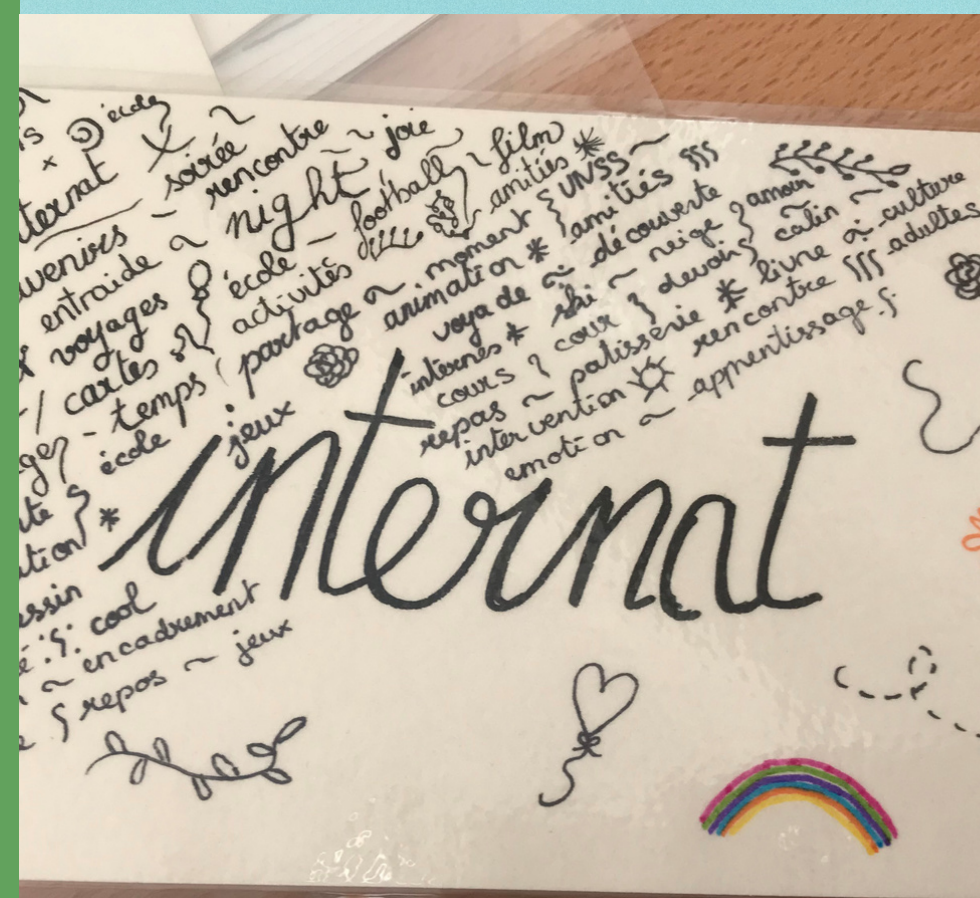 école
soirée ~
rencontre ~ joie
entraide ~ night
voyages école - football film
cartes activités amitiés
- temps partage ~ moment UNSS ~
école jeux animation * amitiés
voyade ~ découverte
internes * ski ~ neige amour
cours cour devoir câlin ~
repas ~ patisserie * livre ~ culture
intervention rencontre adultes
emotion ~ apprentissage
internat
cool
~ encadrement
repos ~ jeux